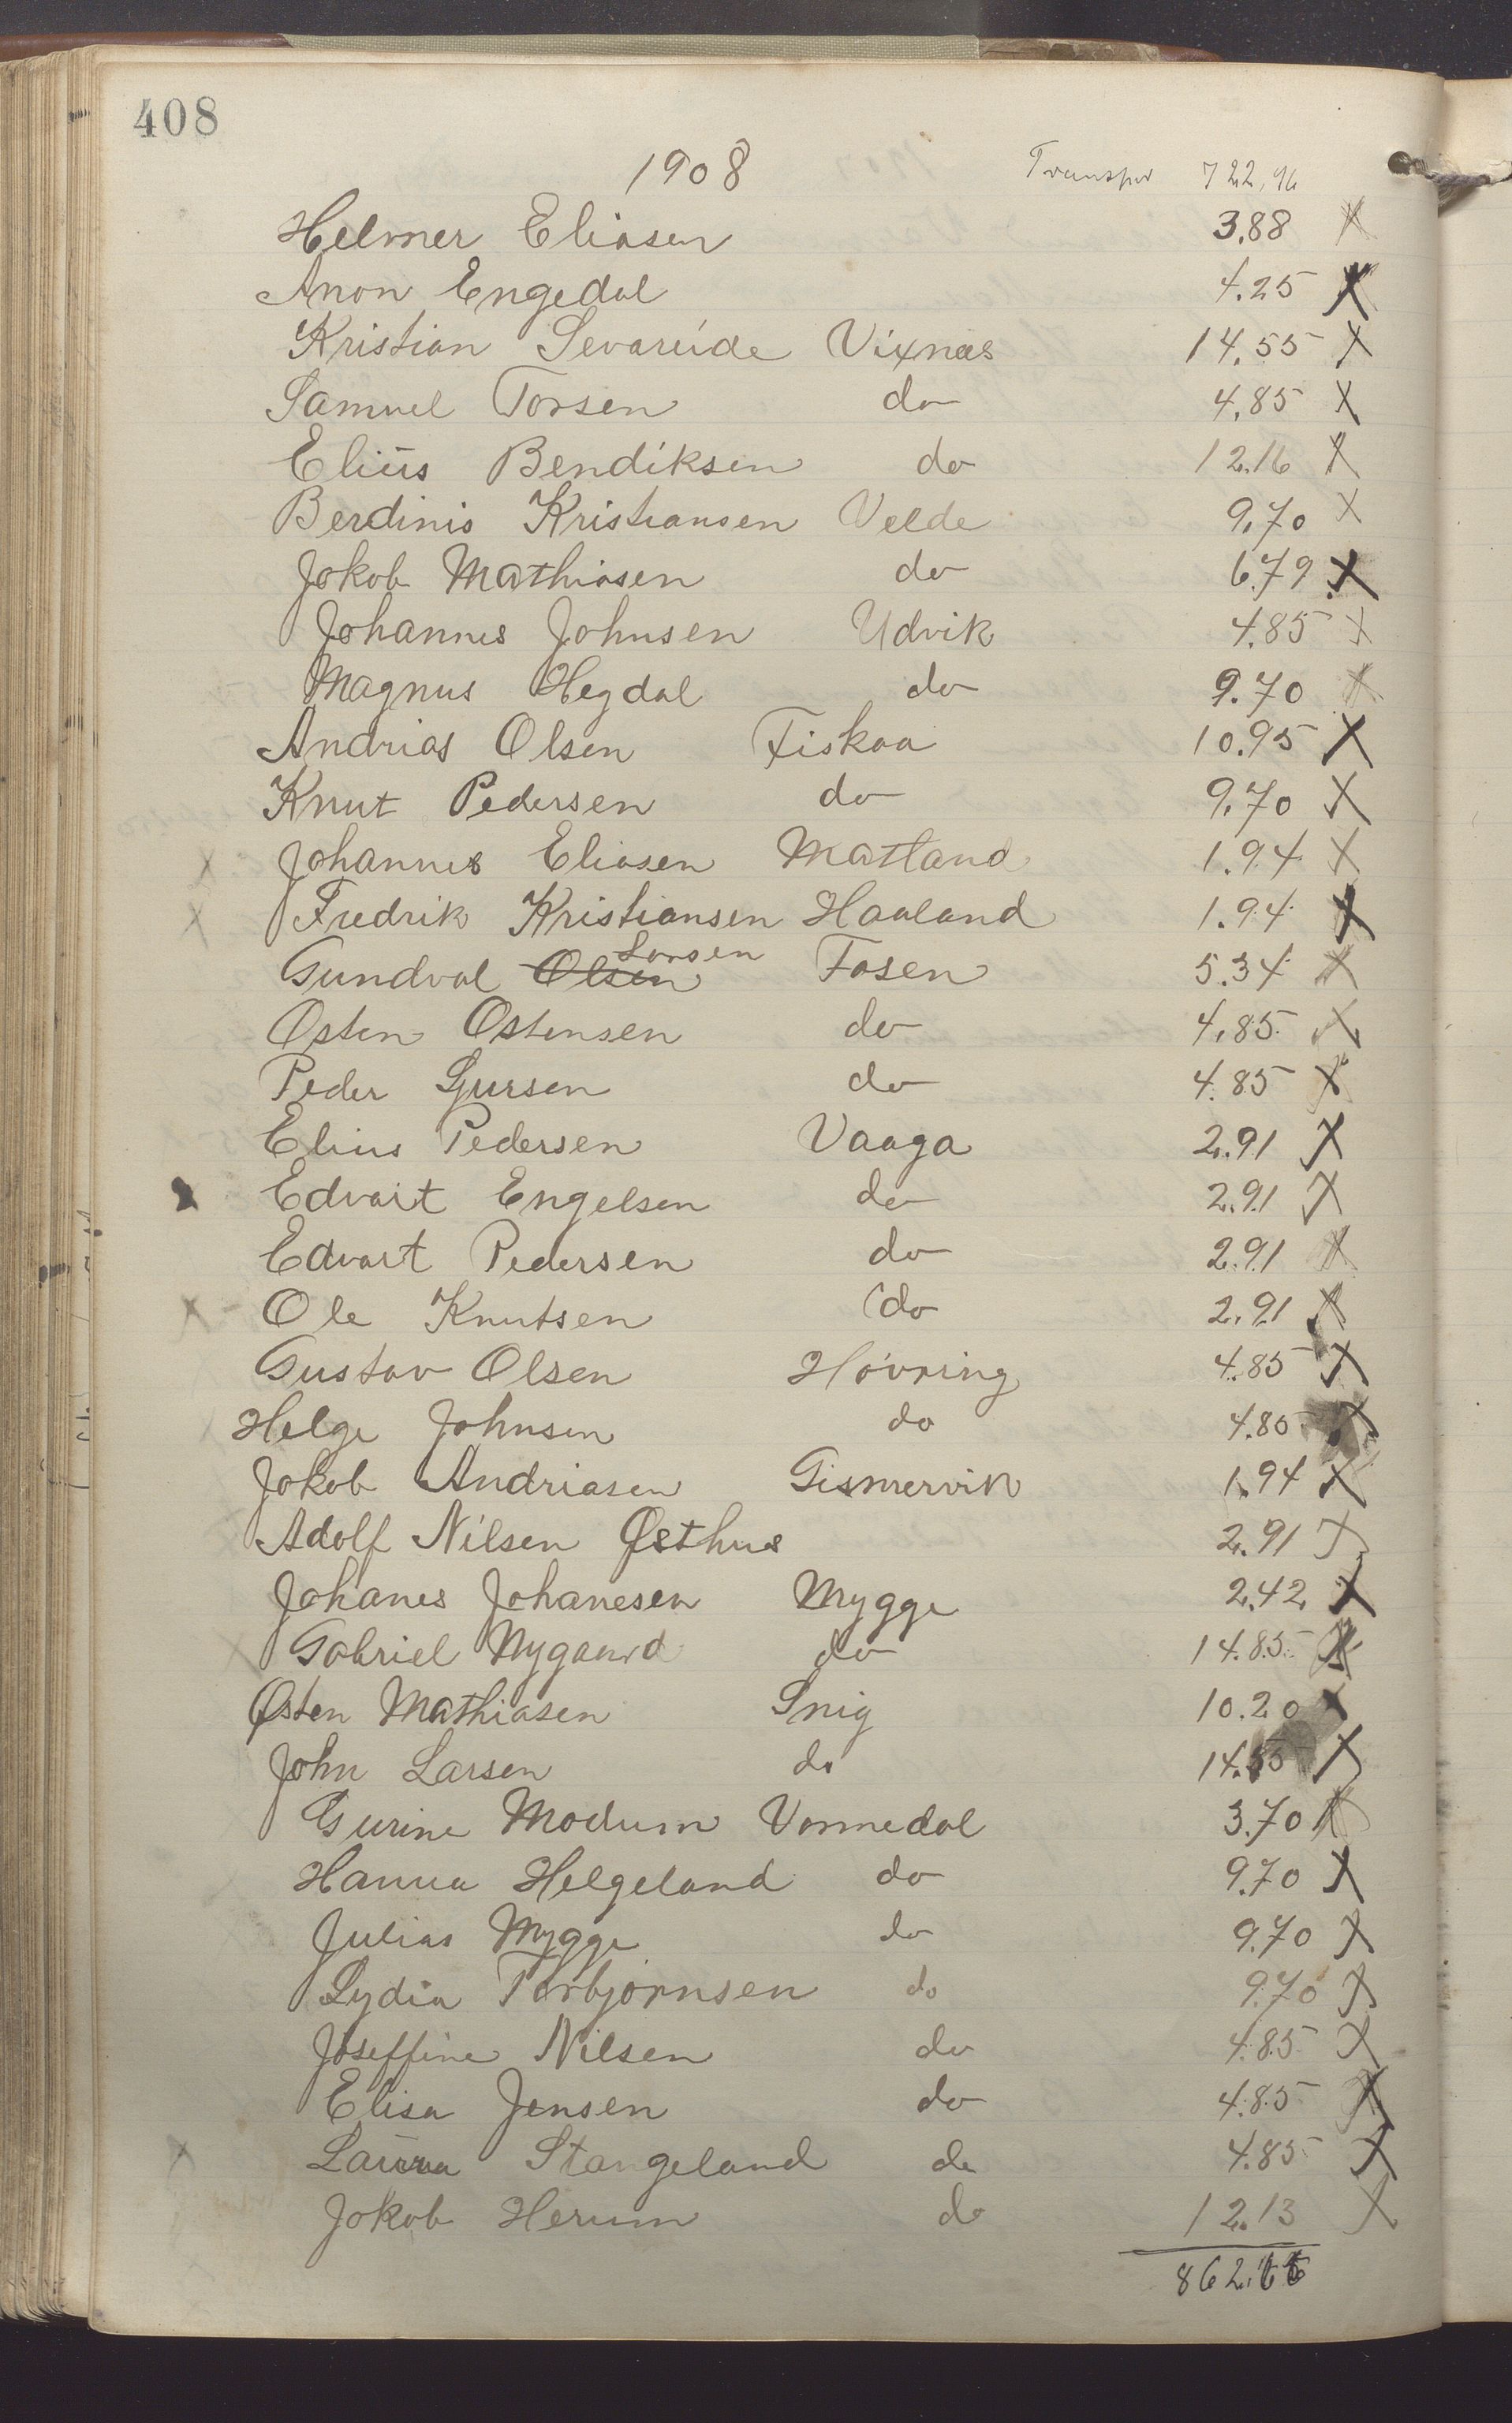 408
1908 Transpor 722,96
Helmer Eliasen 3,88 X
Anon Engedal 4.25 X
Kristian Sevareide Vixnæs 14.55 X
Samuel Torsen do 4,85 X
Eliüs Bendiksen do 12.16 X
Berdinis Kristiansen Velde 9,70 X
Jakob Mathiasen do 6.79 X
Johannes Johnsen Udvik 4.85 X
Magnus Hegdal do 9.70 X
Andrias Olsen Fiskaa 10.95 X
Knut Pedersen do 9.70 X
X Johannes Eliasen Matland 1.94 X
X Fredrik Kristiansen Haaland 1.94 X
Gundval Olsen Larsen Fosen 5.34 X
Østen Ostensen do 4,85 X
Peder Sjursen do 4.85 X
Elius Pedersen Vaaga 2.91 X
Edvart Engelsen do 2.91 X
Edvart Pedersen do 2.91 X
X Ole Knutsen do 2.91 X
Gustav Olsen Høvring 4.85 X
Helge Johnsen do 4.85 X
Jakob Andriasen Gismervik 1.94 X
Adolf Nilsen Østhus 2.91 X
Johanes Johanesen Mygge 2.42 X
Gabriel Nygaard do 14.85 X
Østen Mathiasen Snig 10.20 X
John Larsen do 14.55 X
Gurine Modum Vormedal 3.70 X
Hanna Helgeland do 9.70 X
Julias Mygge do 9.70 X
Lydia Torbjørnsen do 9.70 X
Joseffine Nilsen do 4.85 X
Elisa Jensen do 4.85 X
X Laura Stangeland do 4.85 X
Jakob Herum do 12.13 X
862.